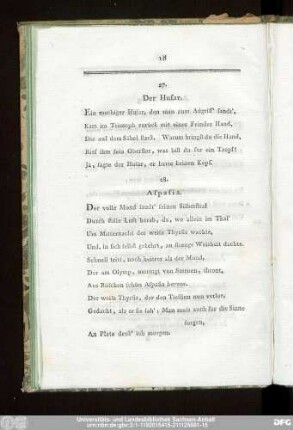 18
27.
Der Husar.
Ein muthiger Husar, den man zum Angriff sandt',
Kam im Triumph zurück mit eines Feindes Hand,
Die auf dem Säbel stack. Warum bringst du die Hand,
Rief ihm sein Oberster, was hast du für ein Tropf?
Ja, sagte der Husar, er hatte keinen Kopf.
28.
Aspasia.
Der volle Mond sandt' seinen Silberstral
Durch stille Luft herab, da, wo allein im Thal
Um Mitternacht der weise Thyrsis wachte,
Und, in sich selbst gekehrt, an strenge Weisheit dachte.
Schnell tritt, noch heitrer als der Mond,
Der am Olymp, umringt von Sternen, thront,
Aus Büschen schön Aspasia hervor.
Der weise Thyrsis, der den Tiefsinn nun verlor,
Gedacht, als er sie sah': Man muß auch für die Sinne
sorgen,
An Plato denk' ich morgen.
Universitäts- und Landesbibliothek Sachsen-Anhalt
DFG